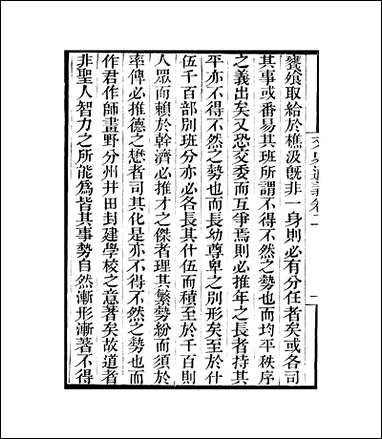 文史通義卷二
一
饔飧取給於樵汲旣非一身則必有分任者矣或各司
其事或番易其班所謂不得不然之勢也而均平秩序
之義出矣又恐交委而互爭焉則必推年之長者持其
平亦不得不然之勢也而長幼尊卑之別形矣至於什
伍千百部別班分亦必各長其什伍而積至於千百則
人眾而賴於幹濟必推才之傑者理其繁勢紛而須於
率俾必推德之懋者司其化是亦不得不然之勢也而
作君作師畫野分州井田封建學校之意著矣故道者
非聖人智力之所能爲皆其事勢自然漸形漸著不得